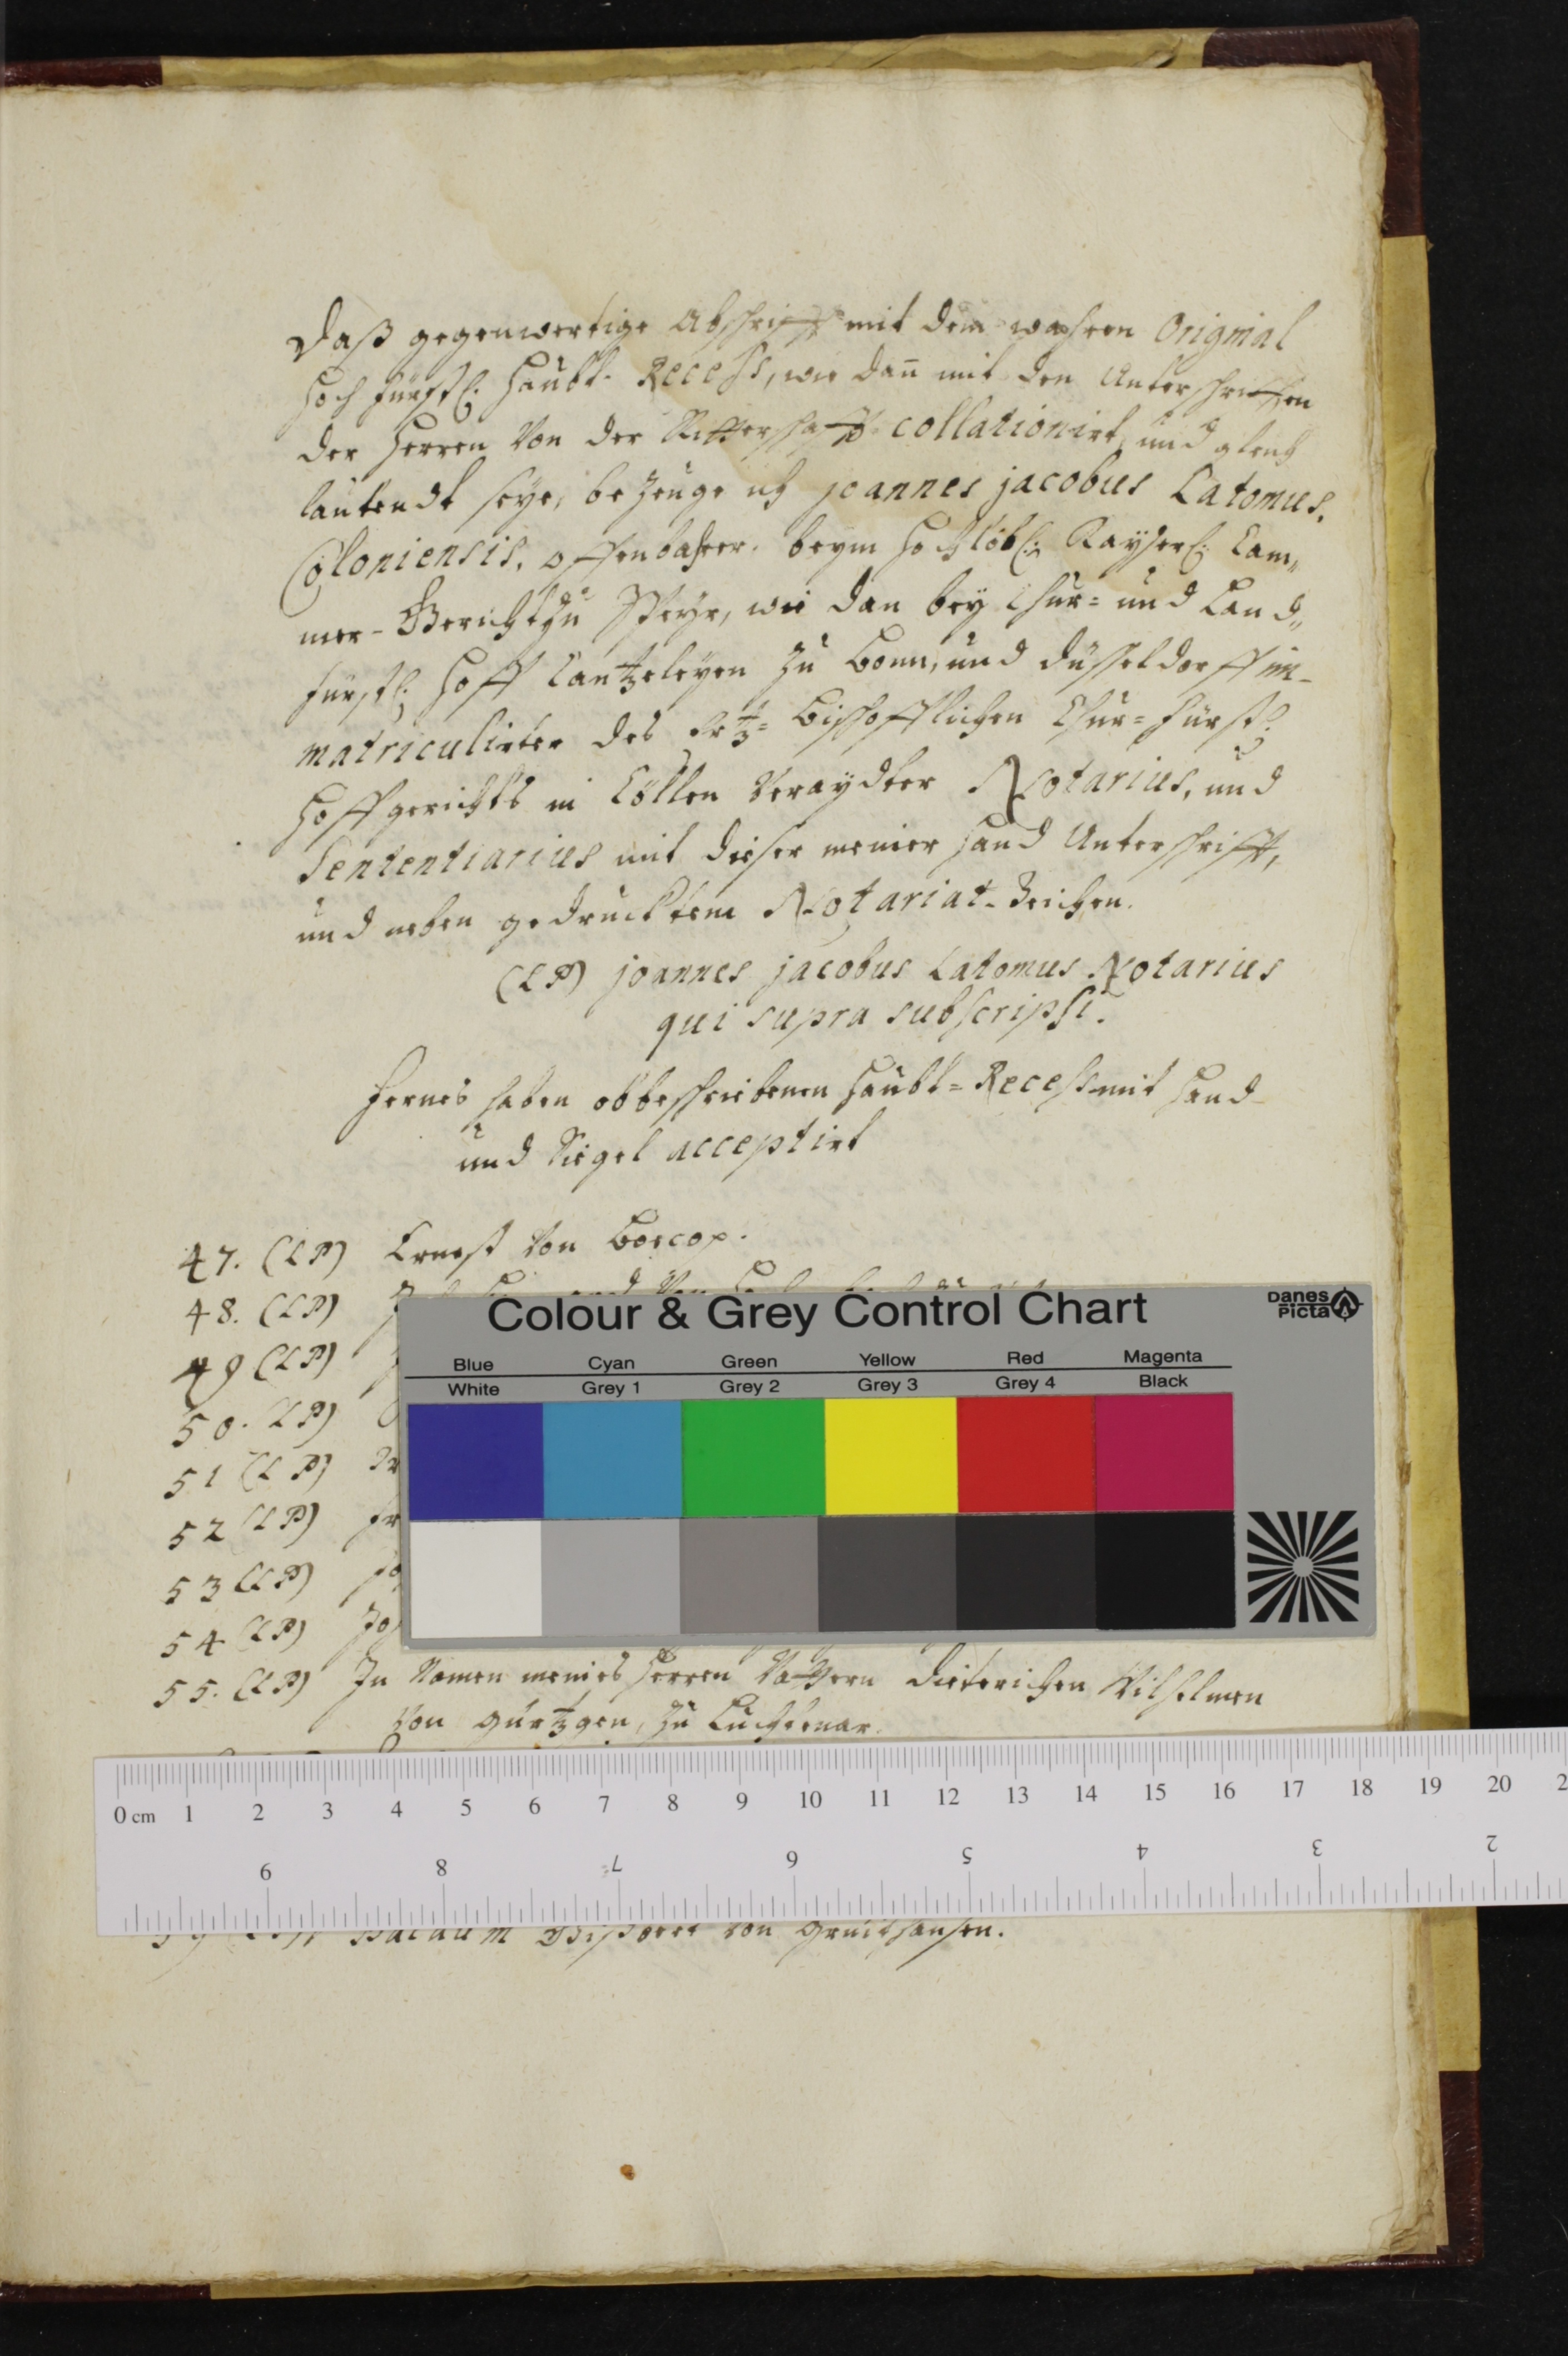 Daß gegenwertige Abschrifft mit dem wahren Original
Hoch fürstl: Haubt-Recess, wie dan̄ mit den Unterschrifften
der Herren Von der Ritterschafft collationirt, und gleich
lautendt seye, bezeuge ich joannes jacobus Latomus,
Coloniensis, offenbahrer, beym Hochlöbl: Kayserl: Cam„
mer-Gericht zu Speyr, wie dan bey Chur= und Land„
fürstl: Hoff Cantzeleyen zu Bonn, und Düsseldorff im-
matriculirter des Ertz= Bischofflichen Chur=fürstl:
Hoffgerichts in Cöllen Veraydter Notarius, und
Sententiarius mit dieser meiner Hand Unterschrifft,
und neben gedrucktem Notariat-Zeichen.
(LS) joannes jacobus Latomus Notarius
qui supra subscripsi.
Ferners haben obbeschriebenen Haubt=Recess mit Hand
und Siegel acceptirt
47. (LS) Ernest Von Boscop.
48. (LS)
49 (LS)
50. LS)
51 (LS)
52 (LS)
53 (LS)
54 (LS)
55. (LS) In Namen meines Herren Vattern Dieterichen Wilhelmen
Von Gürtzgen, zu Lüchtenar.
von Gruithausen.
Colour & Grey Control Chart
Danes
Picta
Blue Cyan Green Yellow Red Magenta
White Grey 1 Grey 2 Grey 3 Grey 4 Black
0 cm 1 2 3 4 5 6 7 8 9 10 11 12 13 14 15 16 17 18 19 20 2
9 8 7 6 5 4 3 2